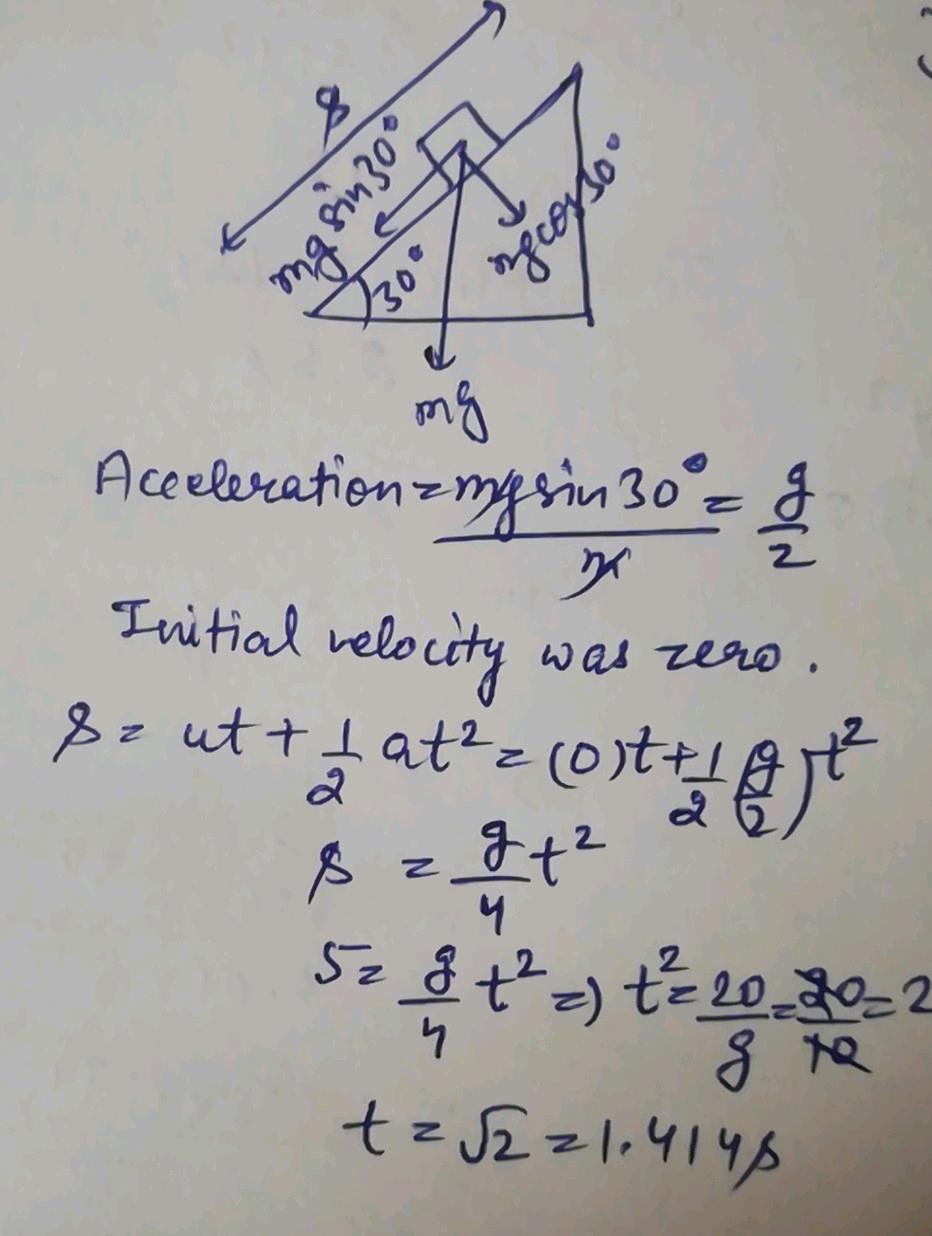 s
mg sin30°
mg cos30°
30°
mg
Acceleration = mg sin 30° / m = g/2
Initial velocity was zero.
s = ut + 1/2 at² = (0)t + 1/2 (g/2)t²
s = g/4 t²
5 = g/4 t² => t² = 20/g = 20/10 = 2
t = √2 = 1.414s